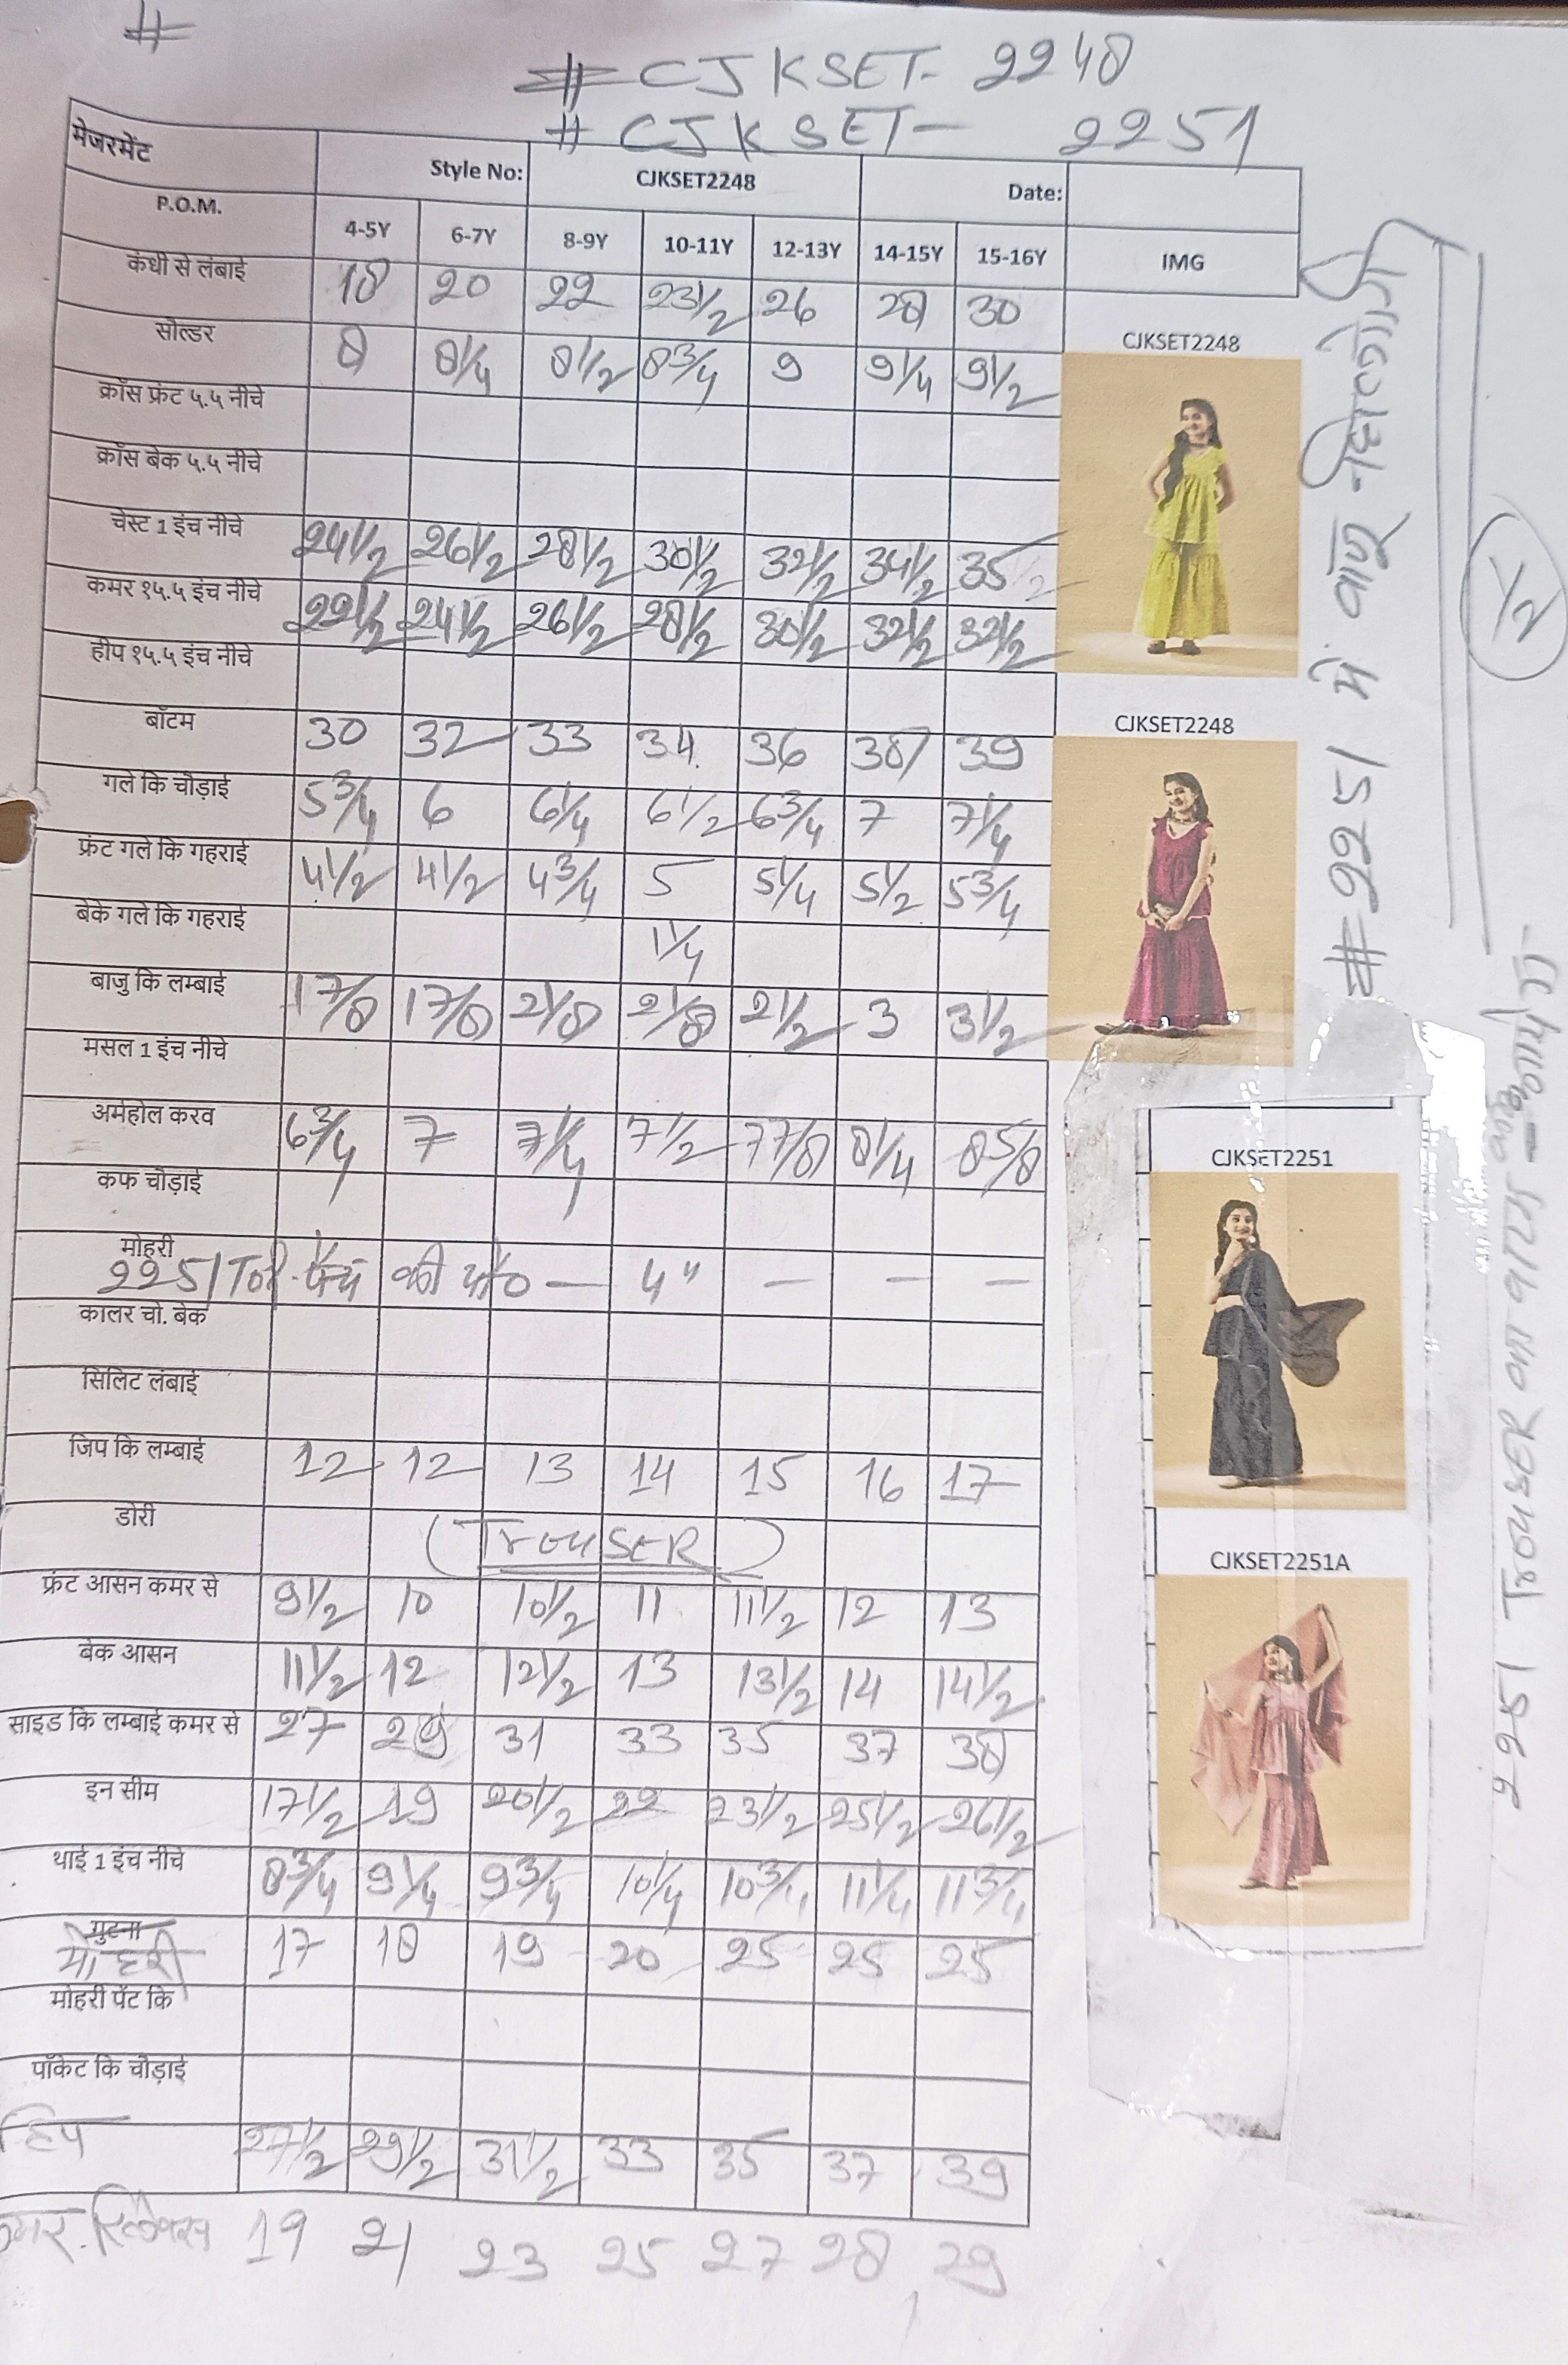 #
# CJKSET- 2248
# CJKSET- 2251
मेजरमेंट Style No: CJKSET2248 Date:
P.O.M. 4-5Y 6-7Y 8-9Y 10-11Y 12-13Y 14-15Y 15-16Y IMG
कंधी से लंबाई 18 20 22 23 1/2 26 28 30
सोल्डर 8 8 1/4 8 1/2 8 3/4 9 9 1/4 9 1/2
क्रॉस फ्रंट ५.५ नीचे
क्रॉस बेक ५.५ नीचे
चेस्ट 1 इंच नीचे 24 1/2 26 1/2 28 1/2 30 1/2 32 1/2 34 1/2 35 1/2
कमर १५.५ इंच नीचे 22 1/2 24 1/2 26 1/2 28 1/2 30 1/2 32 1/2 32 1/2
हीप १५.५ इंच नीचे
बॉटम 30 32 33 34 36 38 39
गले कि चौड़ाई 5 3/4 6 6 1/4 6 1/2 6 3/4 7 7 1/4
फ्रंट गले कि गहराई 4 1/2 4 1/2 4 3/4 5 5 1/4 5 1/2 5 3/4
बेके गले कि गहराई 1 1/4
बाजु कि लम्बाई 1 7/8 1 7/8 2 1/8 2 1/8 2 1/2 3 3 1/2
मसल 1 इंच नीचे
अर्महोल करव 6 3/4 7 7 1/4 7 1/2 7 7/8 8 1/4 8 5/8
कफ चौड़ाई
मोहरी
2251 TOP की — 4" — — —
कालर चो. बेक
सिलिट लंबाई
जिप कि लम्बाई 12 12 13 14 15 16 17
डोरी (TrouSER)
फ्रंट आसन कमर से 9 1/2 10 10 1/2 11 11 1/2 12 13
बेक आसन 11 1/2 12 12 1/2 13 13 1/2 14 14 1/2
साइड कि लम्बाई कमर से 27 29 31 33 35 37 38
इन सीम 17 1/2 19 20 1/2 22 23 1/2 25 1/2 26 1/2
थाई 1 इंच नीचे 8 3/4 9 1/4 9 3/4 10 1/4 10 3/4 11 1/4 11 3/4
घुटना
मोहरी 17 18 19 20 25 25 25
मोहरी पेंट कि
पॉकेट कि चौड़ाई
हिप 27 1/2 29 1/2 31 1/2 33 35 37 39
कमर रिलैक्स 19 21 23 25 27 28 29
CJKSET2248
CJKSET2248
CJKSET2251
CJKSET2251A
#2251 में बाजू नहि लगेगी
1/2
2251 TrouSER का